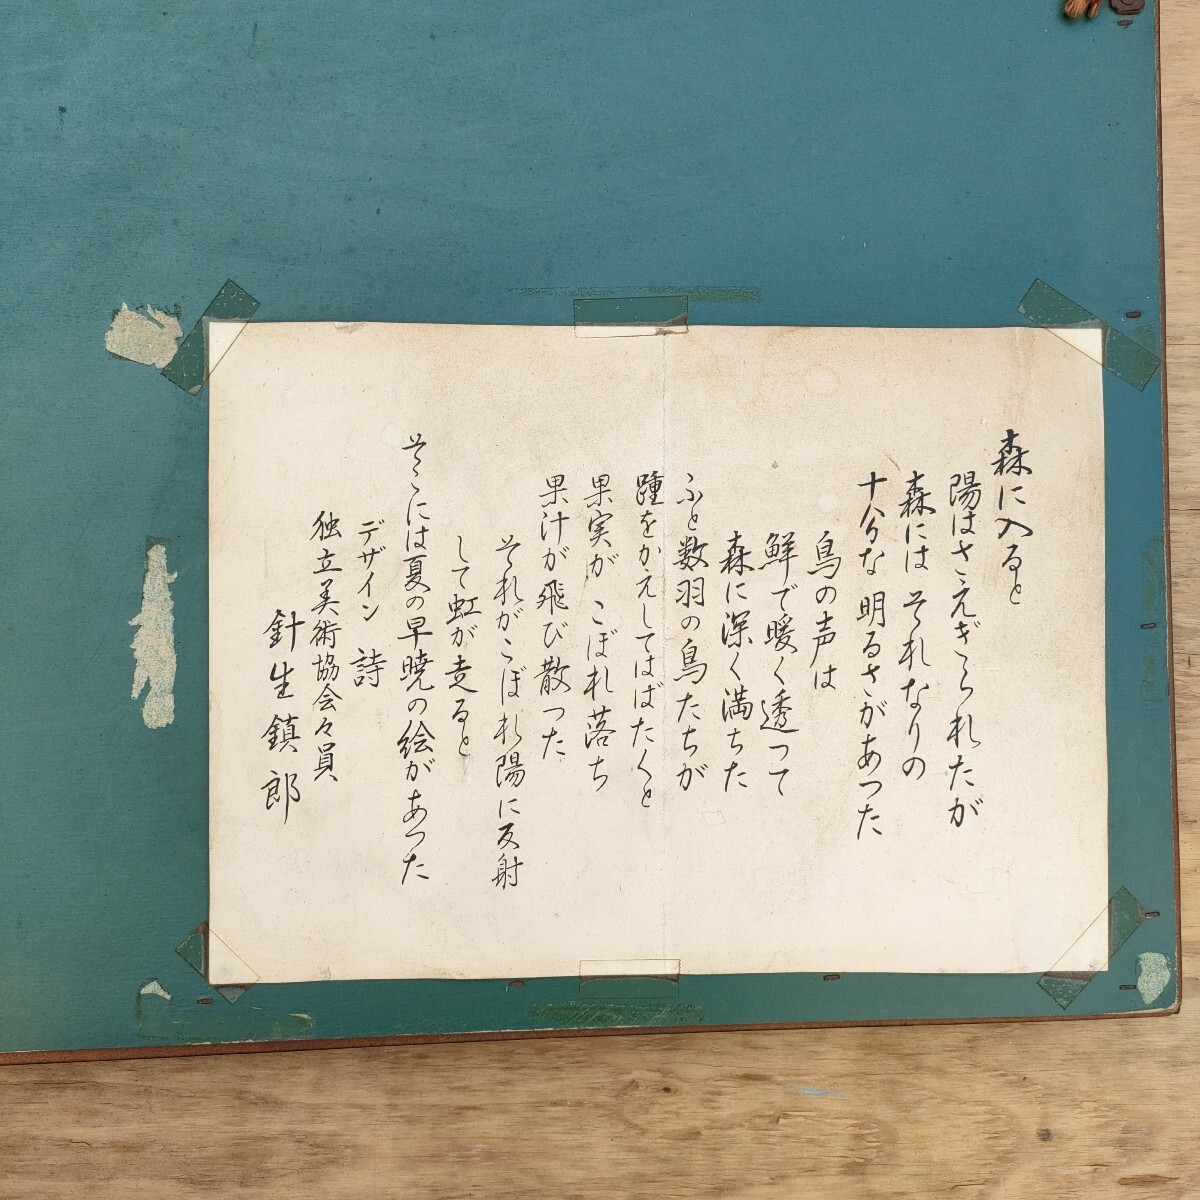 森に入ると
陽はさえぎられたが
森には それなりの
十分な 明るさがあった
鳥の声は
鮮で暖く透って
森に深く満ちた
ふと数羽の鳥たちが
踵をかえしてはばたくと
果実が こぼれ落ち
果汁が飛び散った
それがこぼれ陽に反射
して虹が走ると
そこには夏の早暁の絵があった
デザイン 詩
独立美術協会々員
針生鎮郎